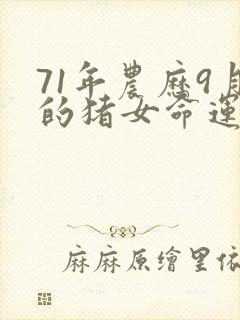 71年農曆9月
的猪女命運
麻麻原繪里依